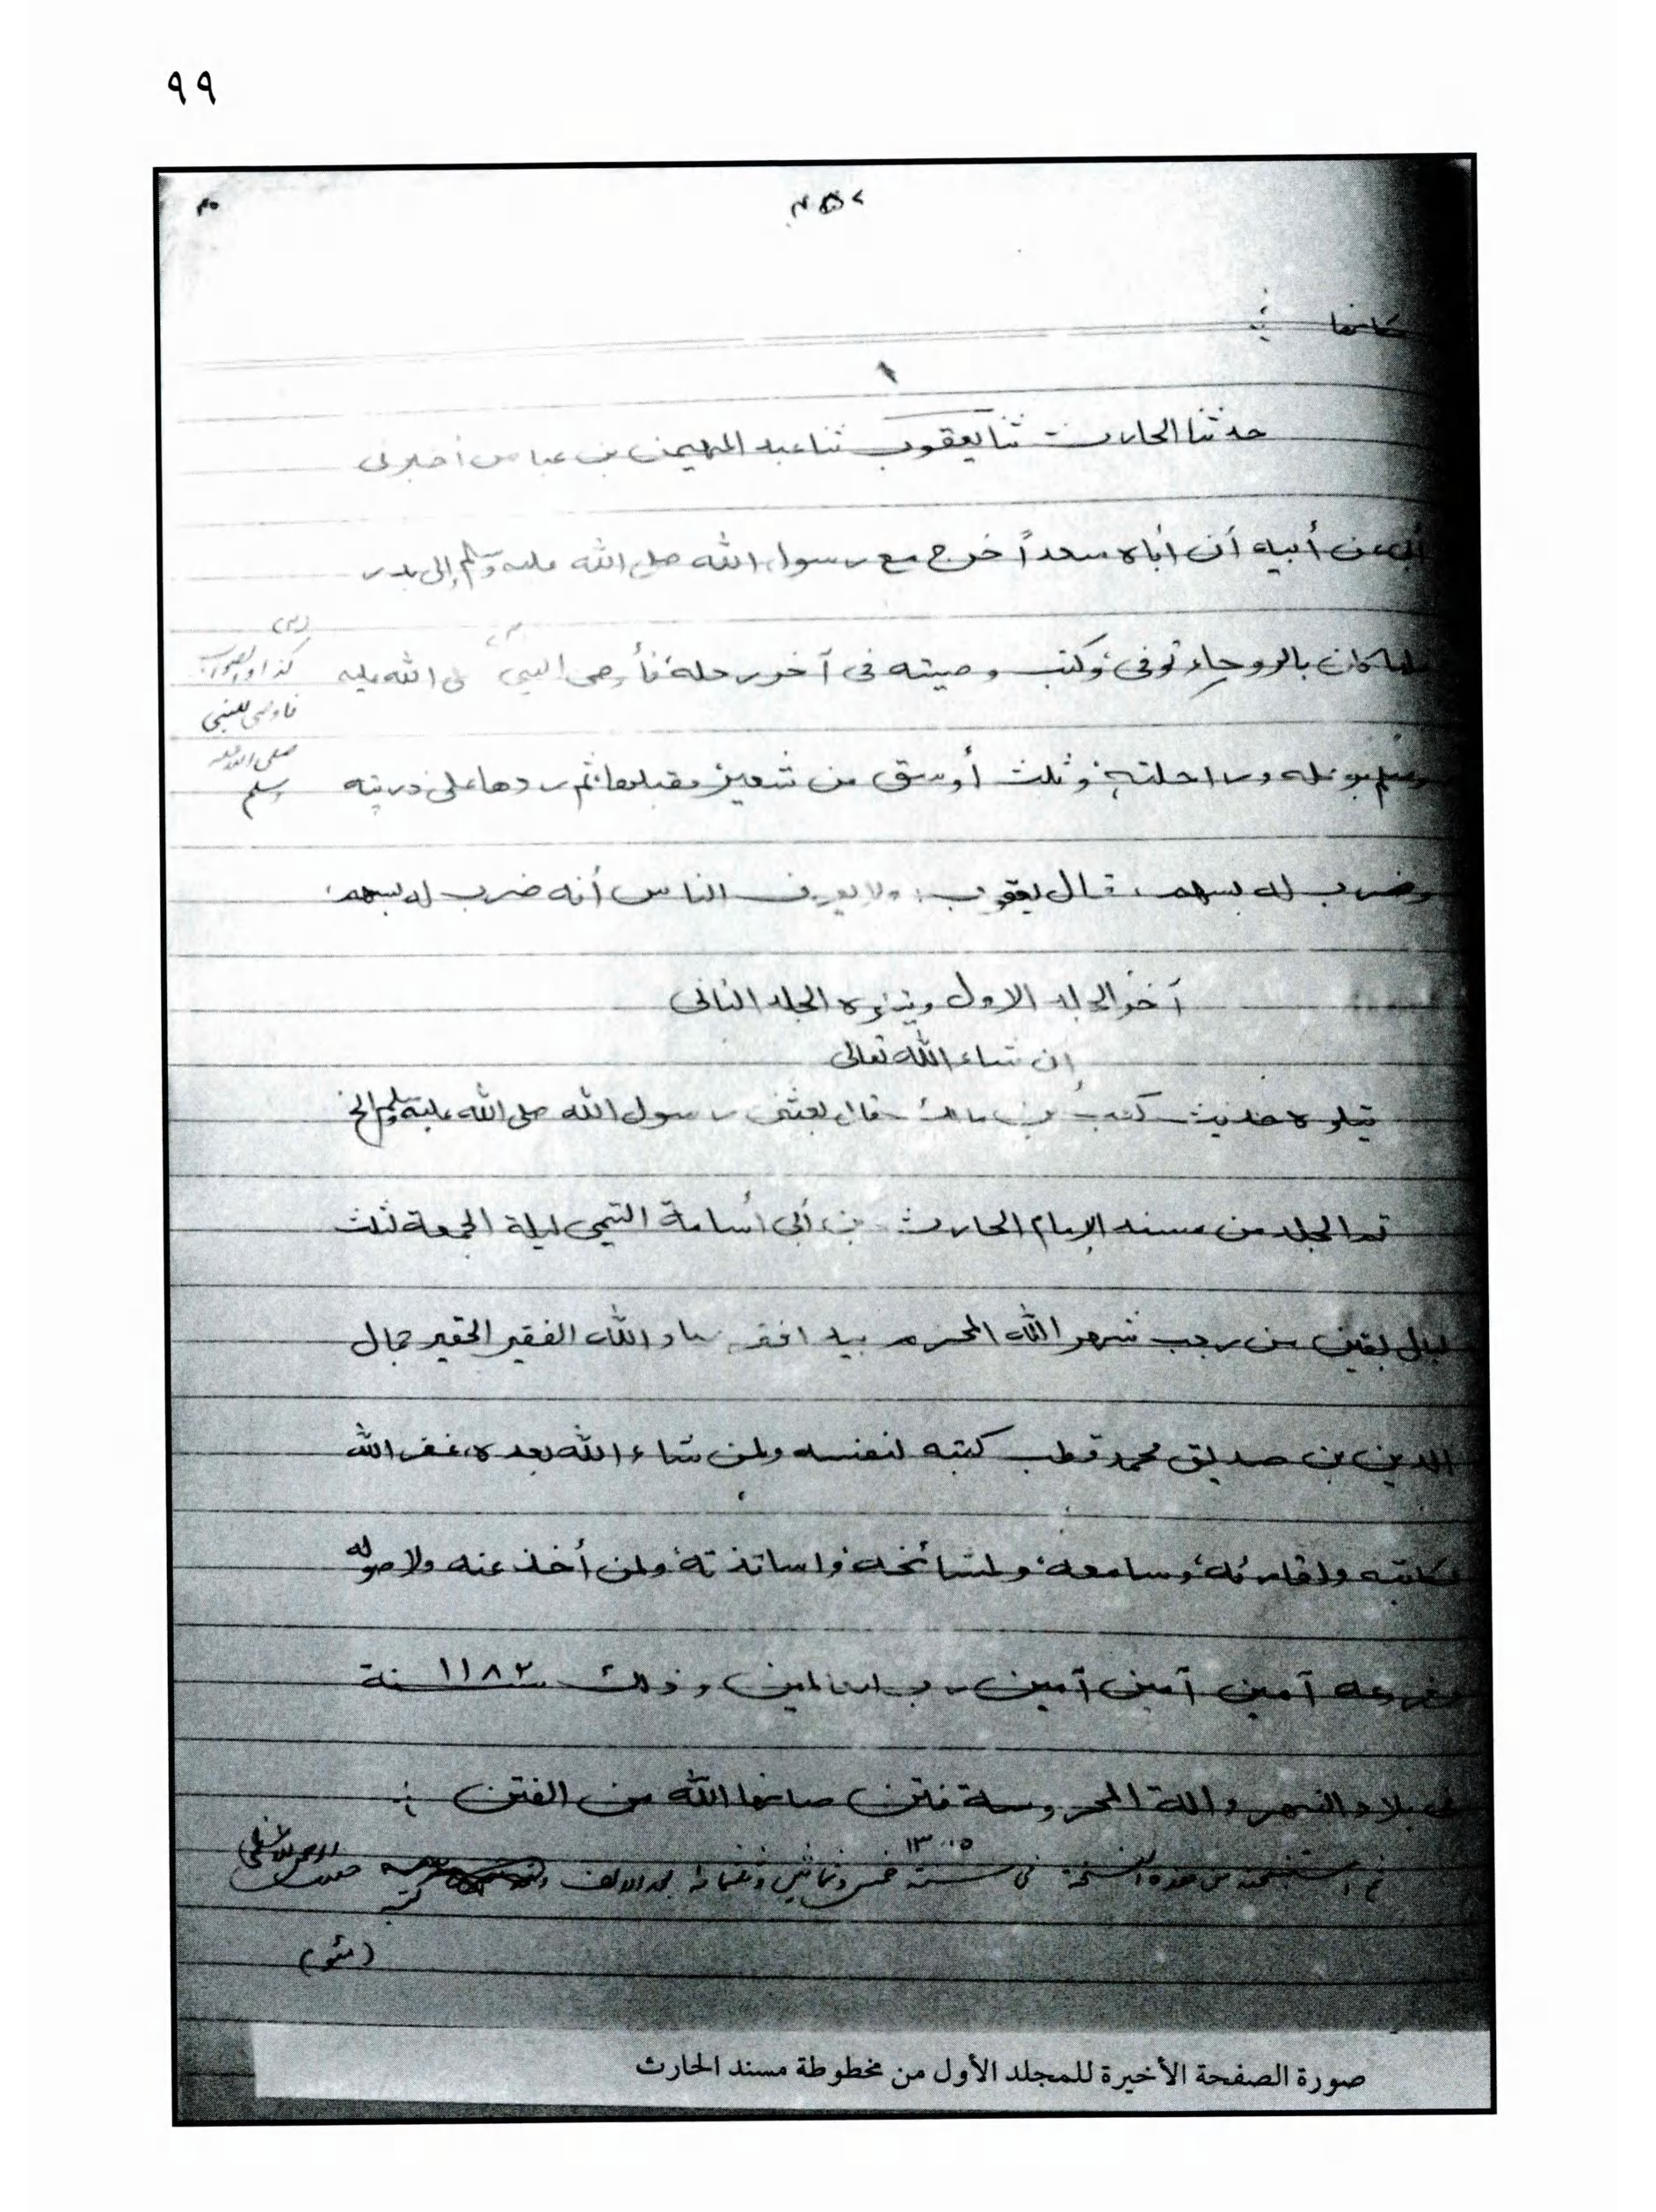 ٩٩
حدثنا الحارث ثنا يعقوب ثنا عبد المهيمن بن عباس أخبرنى
أبى عن أبيه أن أباه سعداً خرج مع رسول الله صلى الله عليه وسلم إلى بدر
فلما كان بالروحاء توفى وكتب وصيته فى آخر رحله فأوصى النبى صلى الله عليه
كذا والصواب
فاوصى للنبى
صلى الله عليه
وسلم
وسلم وراحلته وثلث أوسق من شعير فقبلها ثم ردها على ذريته
وضرب له بسهم، قال يعقوب: ولا يعرف الناس أنه ضرب له بسهم
آخر المجلد الاول ويتلوه المجلد الثانى
ان شاء الله تعالى
يتلوه حديث كعب بن مالك قال بعثنى رسول الله صلى الله عليه وسلم الخ
تم المجلد من مسند الإمام الحارث بن أبى أسامة التيمى ليلة الجمعة ثلث
ليال بقين من رجب شهر الله المحرم بيد افقر عباد الله الفقير الحقير جمال
الدين بن صديق محمد قطب كتبه لنفسه ولمن شاء الله بعده، غفر الله
لكاتبه ولقارئه وسامعه ولمشائخه واساتذته ولمن أخذ عنه ولاصوله
وفروعه آمين آمين آمين رب العالمين وذلك سنة ١١٨٢
فى بلاد النهرواله المحروسة فتن صانها الله من الفتن
١٣٠٥
ثم من هذه النسخة فى سنة بعد الالف
صورة الصفحة الأخيرة للمجلد الأول من مخطوطة مسند الحارث